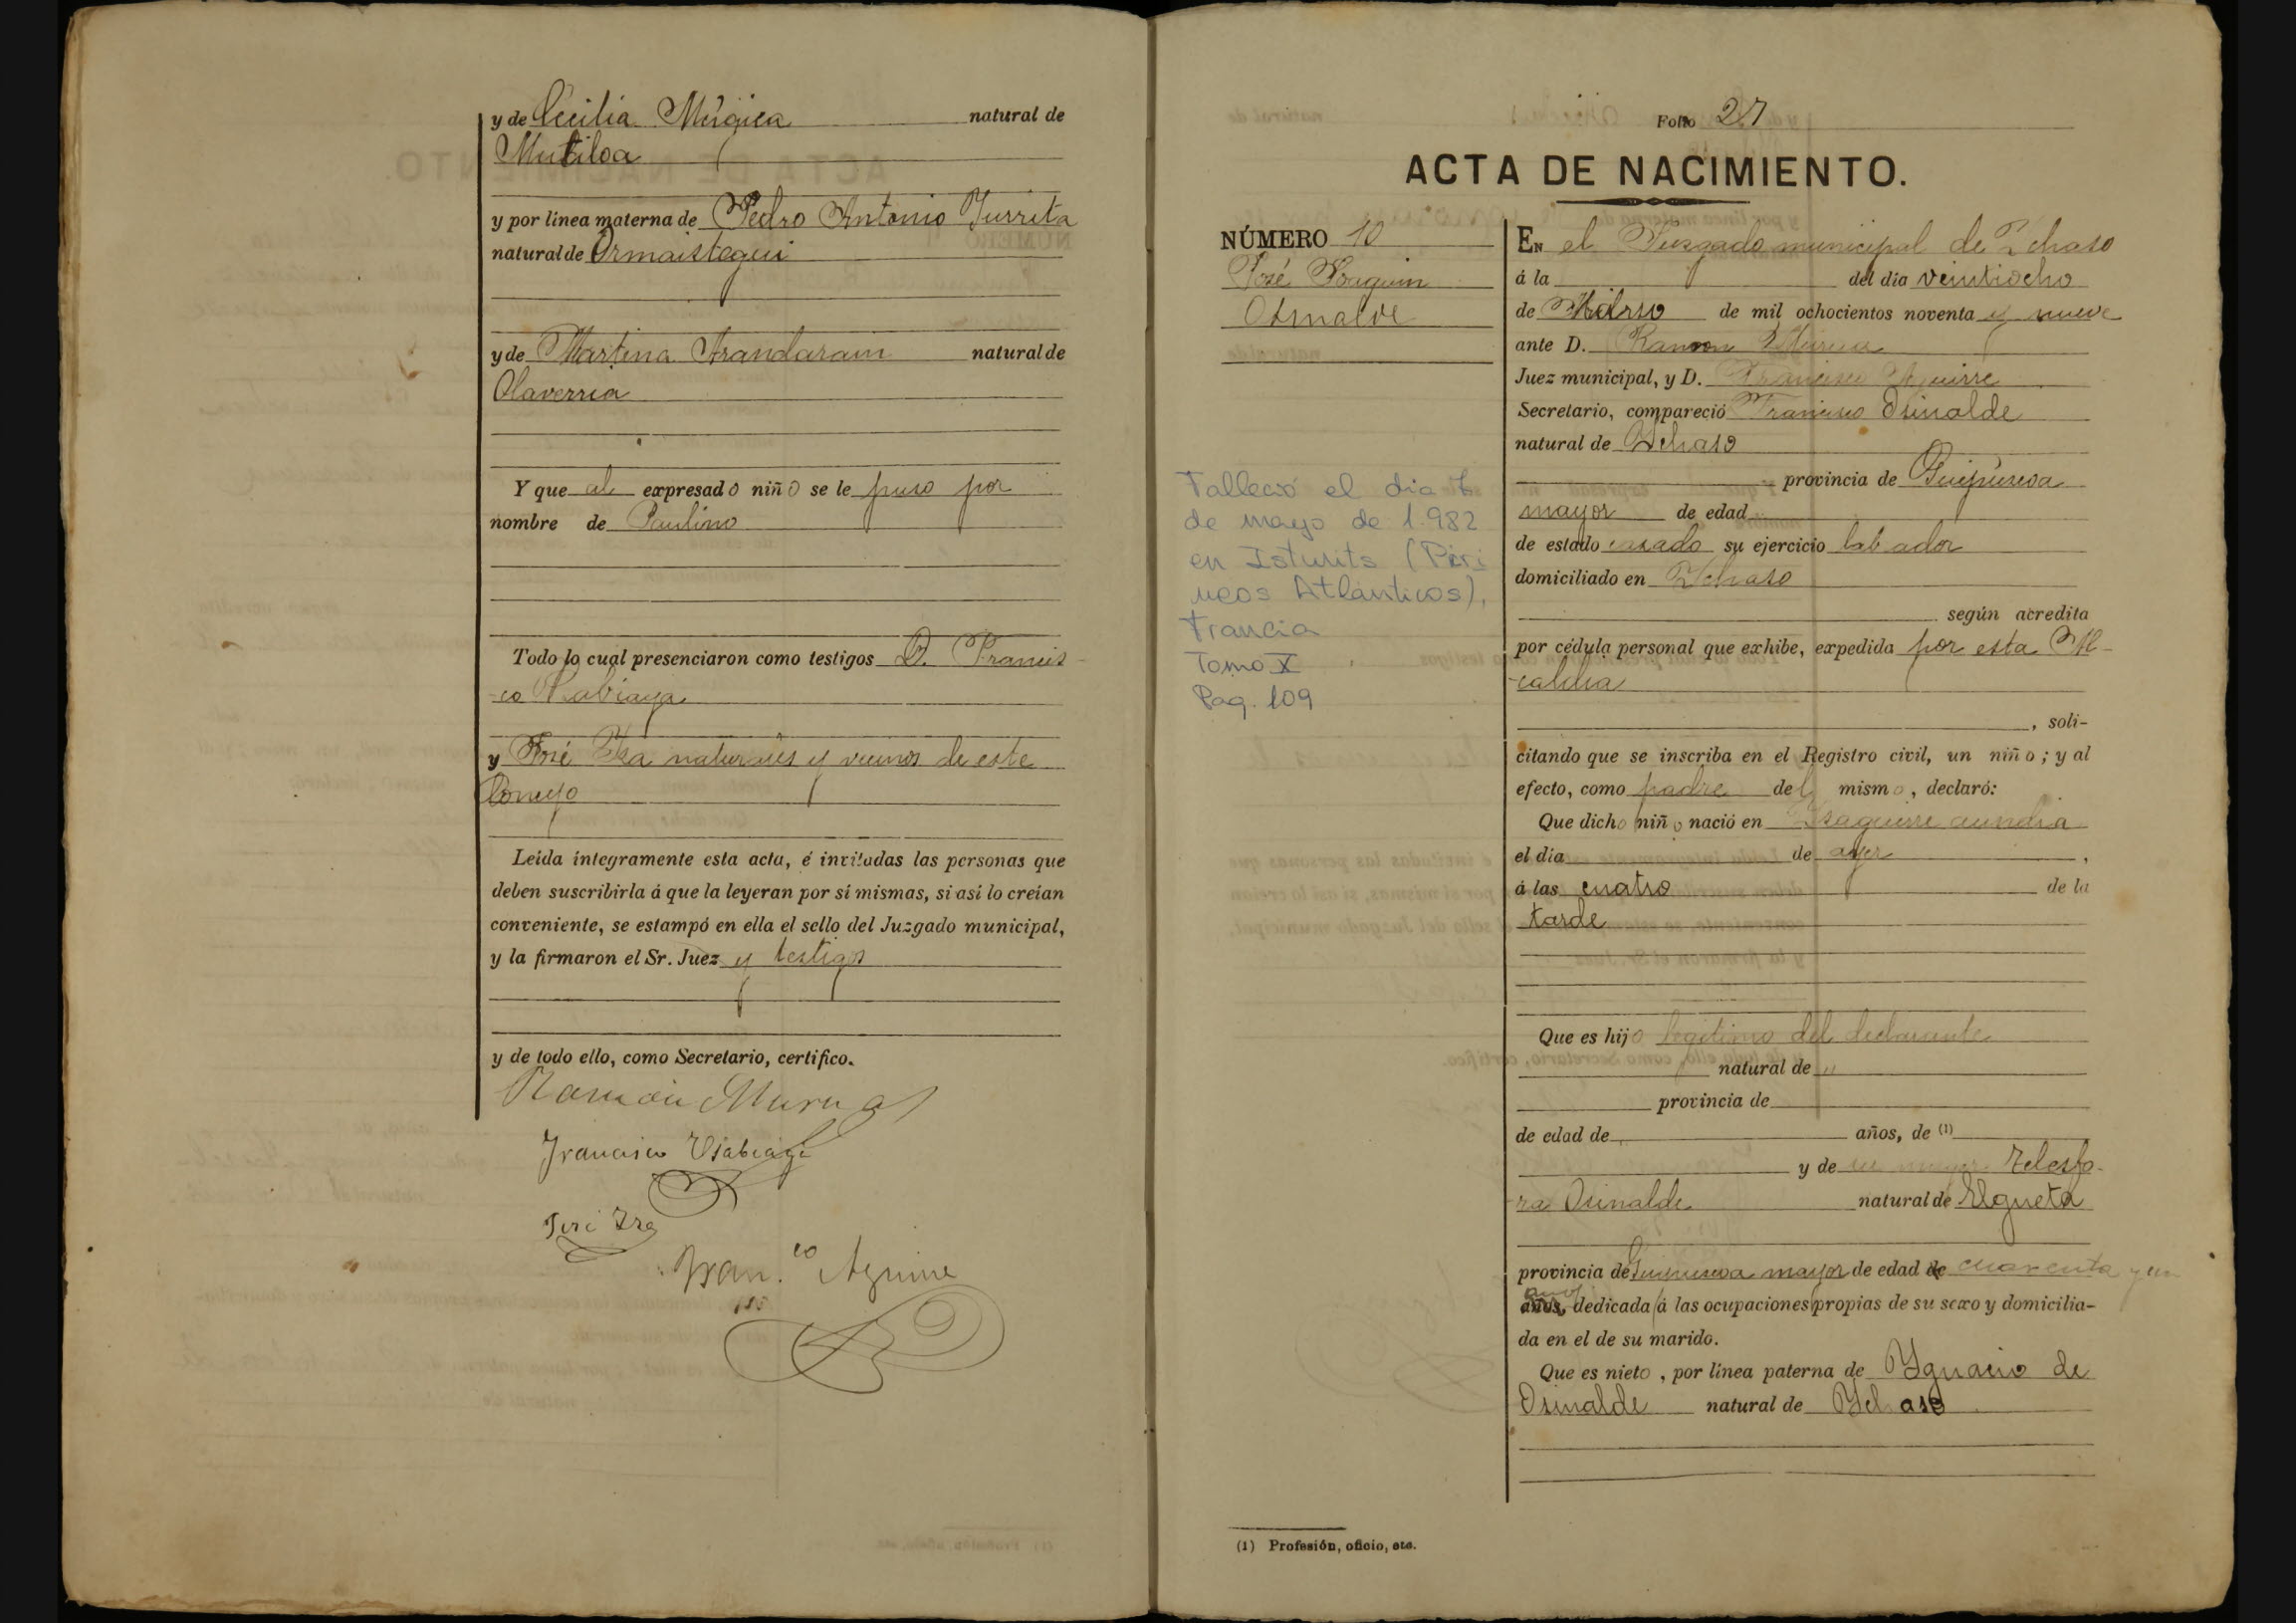 y de Cecilia Múgica natural de
Mutiloa
y por línea materna de Pedro Antonio Yurrita
natural de Ormaistegui
y de Martina Arandarain natural de
Olaverria
Y que al expresado niño se le puso por
nombre de Paulino
Todo lo cual presenciaron como testigos D. Francis-
-co Usabiaga
y José Iza naturales y vecinos de este
Concejo
Leída íntegramente esta acta, é invitadas las personas que
deben suscribirla á que la leyeran por sí mismas, si así lo creían
conveniente, se estampó en ella el sello del Juzgado municipal,
y la firmaron el Sr. Juez y testigos
y de todo ello, como Secretario, certifico.
Ramón Murua
Francisco Usabiaga
José Iza
Fran.co Aguirre
Folio 27
ACTA DE NACIMIENTO.
NÚMERO 10
José Joaquin
Osinalde
Falleció el dia
de mayo de 1.982
en Isturits (Piri
neos Atlánticos),
Francia
Tomo X
Pag. 109
EN el Juzgado municipal de Ichaso
á la del día veintiocho
de Marzo de mil ochocientos noventa y nueve
ante D. Ramon Murua
Juez municipal, y D. Francisco Aguirre
Secretario, compareció Francisco Osinalde
natural de Ichaso
provincia de Guipúzcoa
mayor de edad
de estado casado su ejercicio labrador
domiciliado en Ichaso
según acredita
por cédula personal que exhibe, expedida por esta Al-
-caldia
, soli-
citando que se inscriba en el Registro civil, un niño; y al
efecto, como padre del mismo, declaró:
Que dicho niño nació en Izaguirre aundia
el día de ayer,
á las cuatro de la
tarde
Que es hijo legitimo del declarante
natural de "
provincia de
de edad de años, de (1)
y de su mujer Telesfo-
-ra Osinalde natural de Elgueta
provincia de Guipuzcoa mayor de edad de cuarenta y un
años, dedicada á las ocupaciones propias de su sexo y domicilia-
da en el de su marido.
Que es nieto, por línea paterna de Ygnacio de
Osinalde natural de Ychaso
(1) Profesión, oficio, etc.